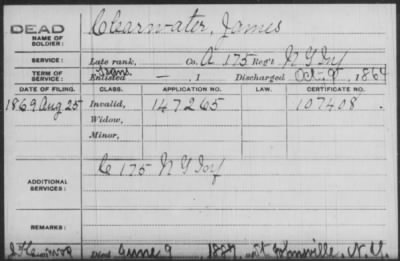 DEAD
NAME OF SOLDIER: Clearwater, James
SERVICE: Late rank, Co. A 175 Reg't N Y Inf
TERM OF SERVICE: Trans. Enlisted — , 1 Discharged Oct. 9, 1864
DATE OF FILING. CLASS. APPLICATION NO. LAW. CERTIFICATE NO.
1869 Aug 25 Invalid, 147265 107408.
Widow,
Minor,
ADDITIONAL SERVICES: C 175 N Y Inf
REMARKS:
Died June 9, at N. Y.